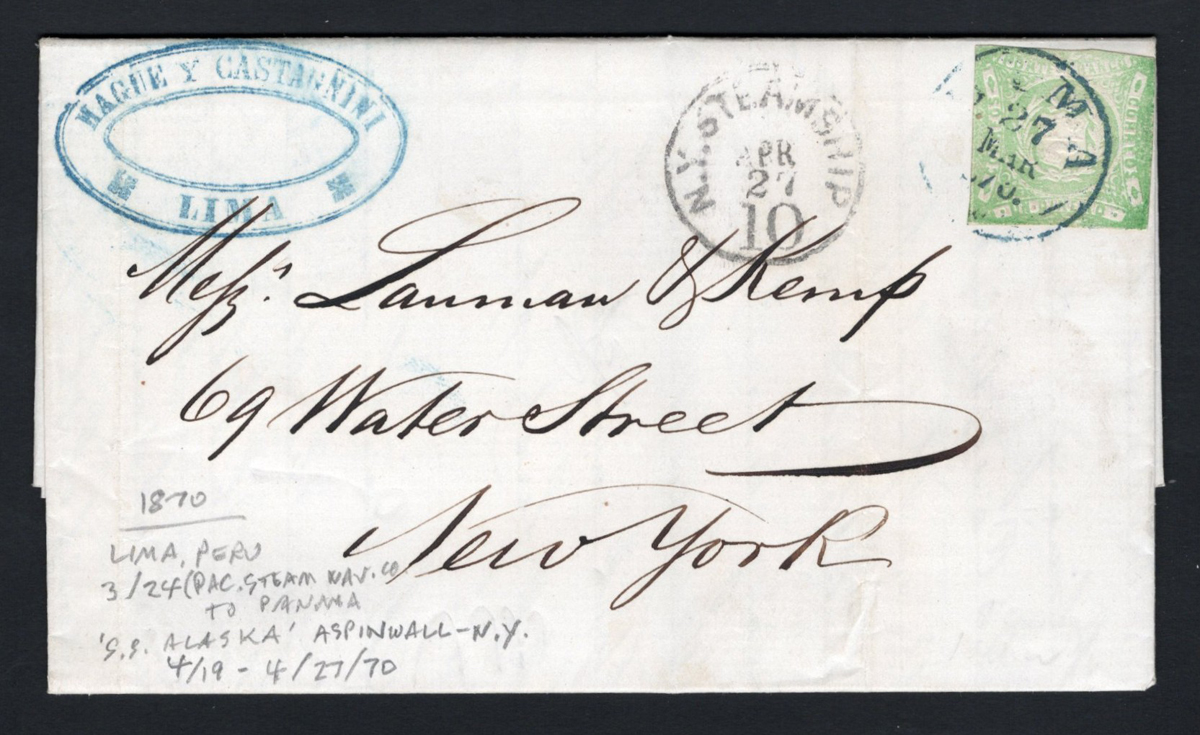 HAGUE Y CASTAGNINI
LIMA
N.Y. STEAMSHIP
APR
27
10
MA
27
MAR
70.
Messrs. Lanman & Kemp
69 Water Street
New York
1870
LIMA, PERU
3/24 (PAC. STEAM NAV. CO
TO PANAMA
'S.S. ALASKA' ASPINWALL-N.Y.
4/19 - 4/27/70